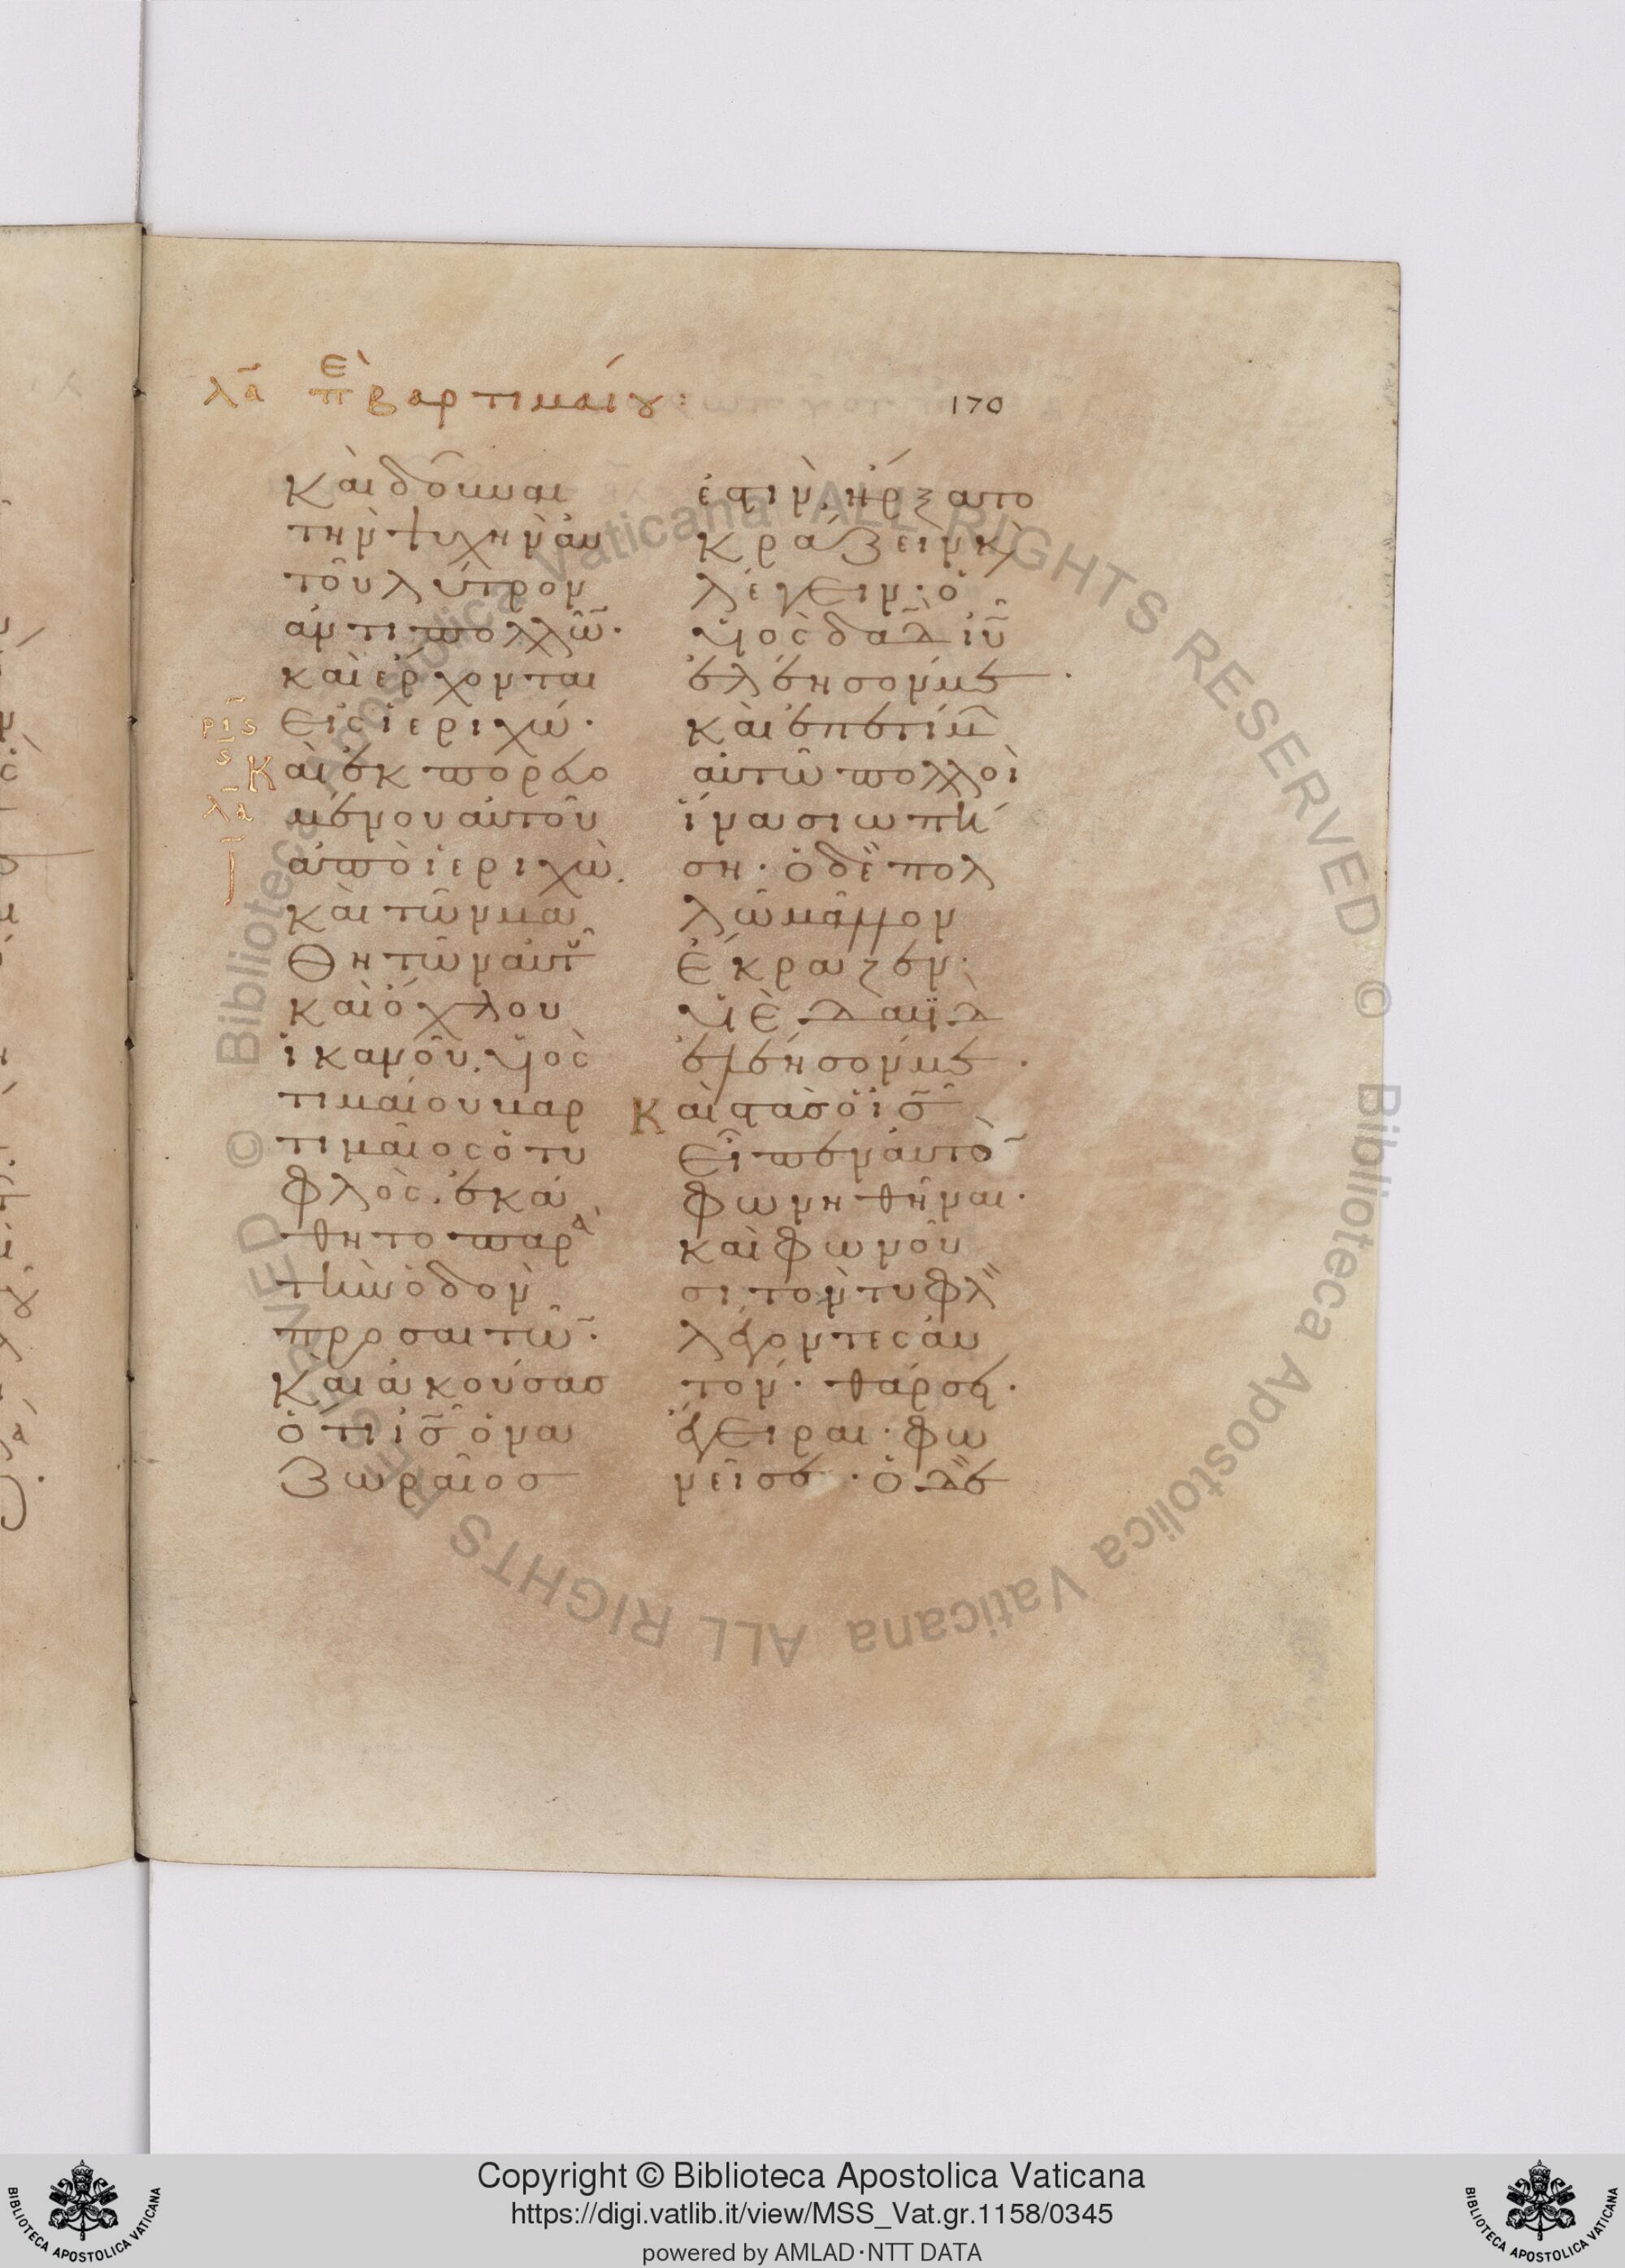 λα Ἐπὶ βαρτιμαίου:
170
καὶ δοῦναι
τὴν ψυχὴν αὐ
τοῦ λύτρον
ἀντι πολλῶ̅·
καὶ ἔρχονται
ρις εἰς ἱεριχώ·
ς Καὶ ἐκπορευο
λα μένου αὐτοῦ
ἀπὸ ἱεριχὼ.
καὶ τῶν μα
θητῶν αὐτοῦ
καὶ ὄχλου
ἱκανοῦ. υἱὸς
τιμαίου βαρ
τιμαῖος ὁ τυ
φλὸς. ἐκά
θητο παρὰ
τὴν ὁδὸν
προσαιτῶ̅·
Καὶ ἀκούσας
ὅτι ι̅ς̅ ὁ να
ζωραῖος
ἐστιν, ἤρξατο
κράζειν κὶ
λέγειν· ὁ
υἱὸς δα̅δ̅ ι̅υ̅
ἐλέησόν με·
καὶ ἐπετίμ
αὐτῶ πολλοὶ
ἵνα σιωπή
ση· ὁ δὲ πολ
λῶ μᾶλλον
ἔκραζεν·
υἱὲ δαυϊδ
ἐλέησόν με·
Καὶ στὰς ὁ ι̅ς̅
εἶπεν αὐτὸ̅
φωνηθῆναι·
καὶ φωνοῦ
σι τὸν τυφλ
λέγοντες αὐ
τόν· θάρσει·
ἔγειραι· φω
νεῖ σε· ὁ δὲ
Copyright © Biblioteca Apostolica Vaticana
https://digi.vatlib.it/view/MSS_Vat.gr.1158/0345
powered by AMLAD·NTT DATA
BIBLIOTECA APOSTOLICA VATICANA
BIBLIOTECA APOSTOLICA VATICANA
© Biblioteca Apostolica Vaticana ALL RIGHTS RESERVED © Biblioteca Apostolica Vaticana ALL RIGHTS RESERVED